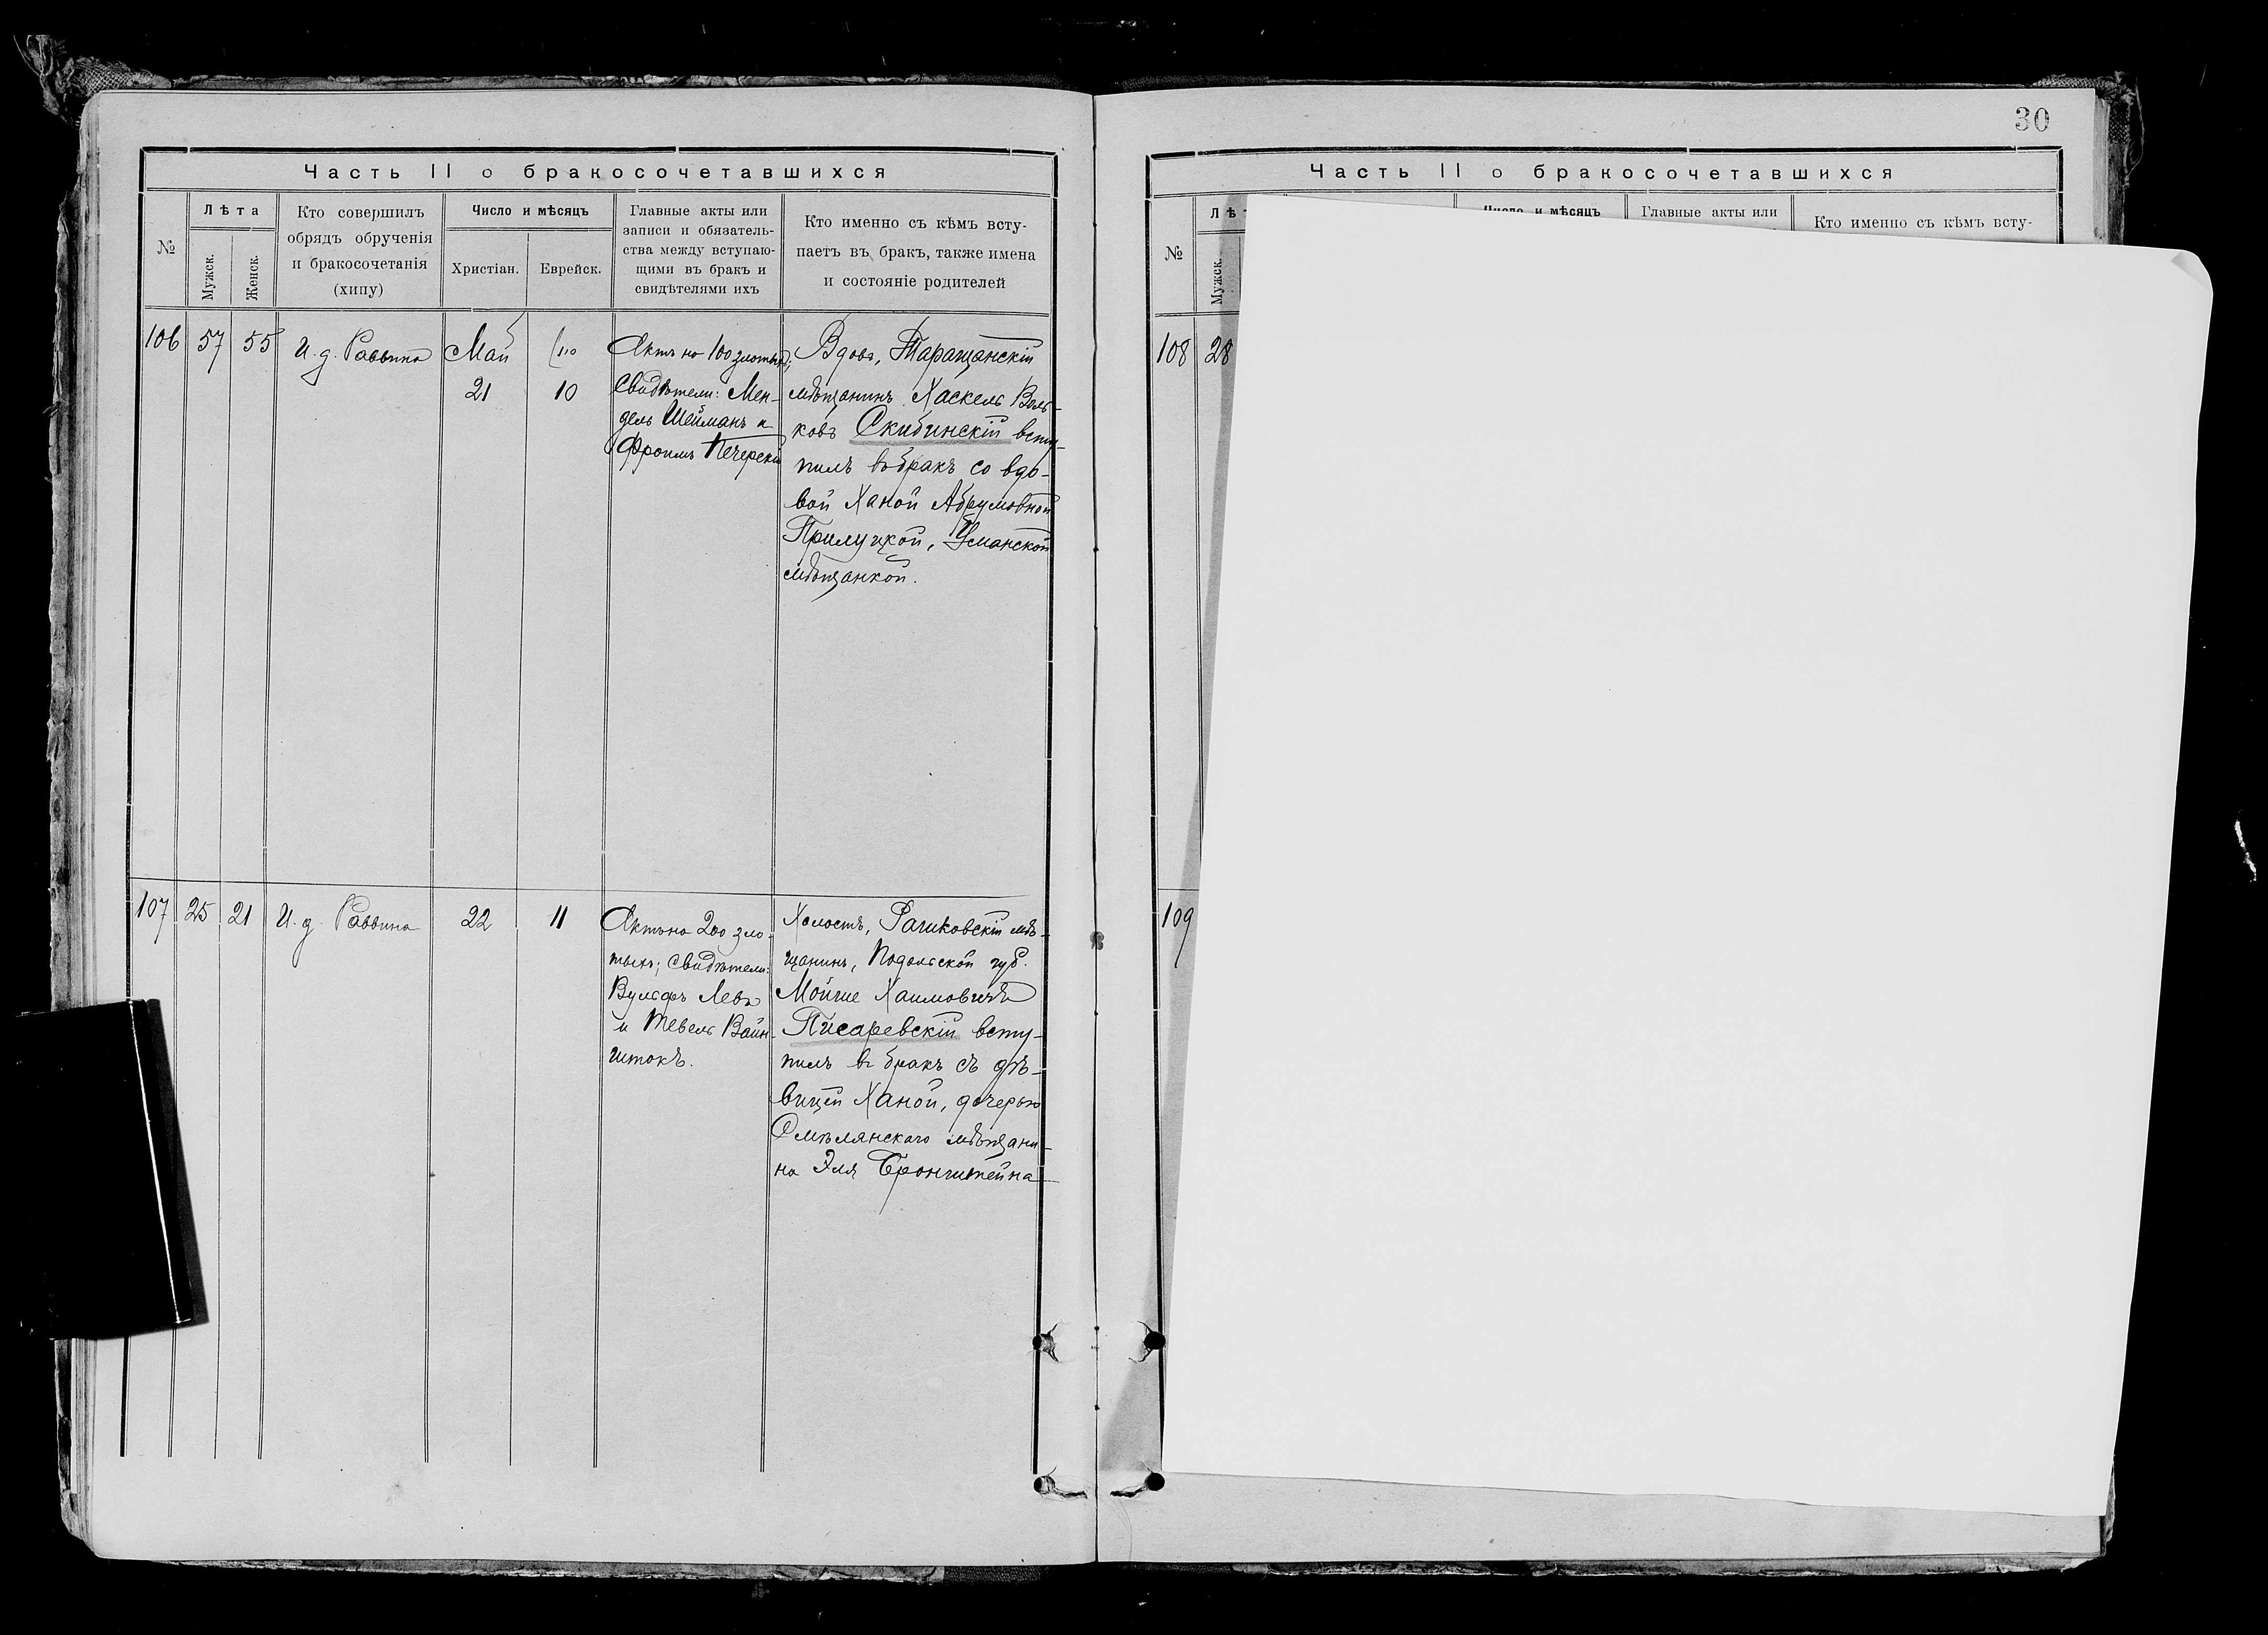 30
Часть II о бракосочетавшихся
№
Лѣта
Мужск.
Женск.
Кто совершилъ
обрядъ обрученія
и бракосочетанія
(хипу)
Число и мѣсяцъ
Христіан.
Еврейск.
Главные акты или
записи и обязатель-
ства между вступаю-
щими въ бракъ и
свидѣтелями ихъ
Кто именно съ кѣмъ всту-
паетъ въ бракъ, также имена
и состояніе родителей
106
57
55
И. д. Раввина
Май
21
10
Актъ на 100 злотыхъ;
Свидѣтели: Мен-
дель Шейманъ и
Фроимъ Печерскій
Вдовъ, Таращанскій
мѣщанинъ Хаскель Воль-
ковъ Скибинскій всту-
пилъ въ бракъ со вдо-
вой Ханой Абрумовной
Прилуцкой, Уманской
мѣщанкой.
107
25
21
И. д. Раввина
22
11
Актъ на 200 зло-
тыхъ; Свидѣтели:
Вульфъ Левъ
и Тевель Вайн-
штокъ.
Холостъ, Рашковскій мѣ-
щанинъ, Подольской губ.
Мойше Хаимовичъ
Писаревскій всту-
пилъ въ бракъ съ дѣ-
вицей Ханой, дочерью
Смѣлянскаго мѣщани-
на Эля Бронштейна
Часть II о бракосочетавшихся
№
Лѣт
Мужск.
Число и мѣсяцъ
Главные акты или
Кто именно съ кѣмъ всту-
108
28
109